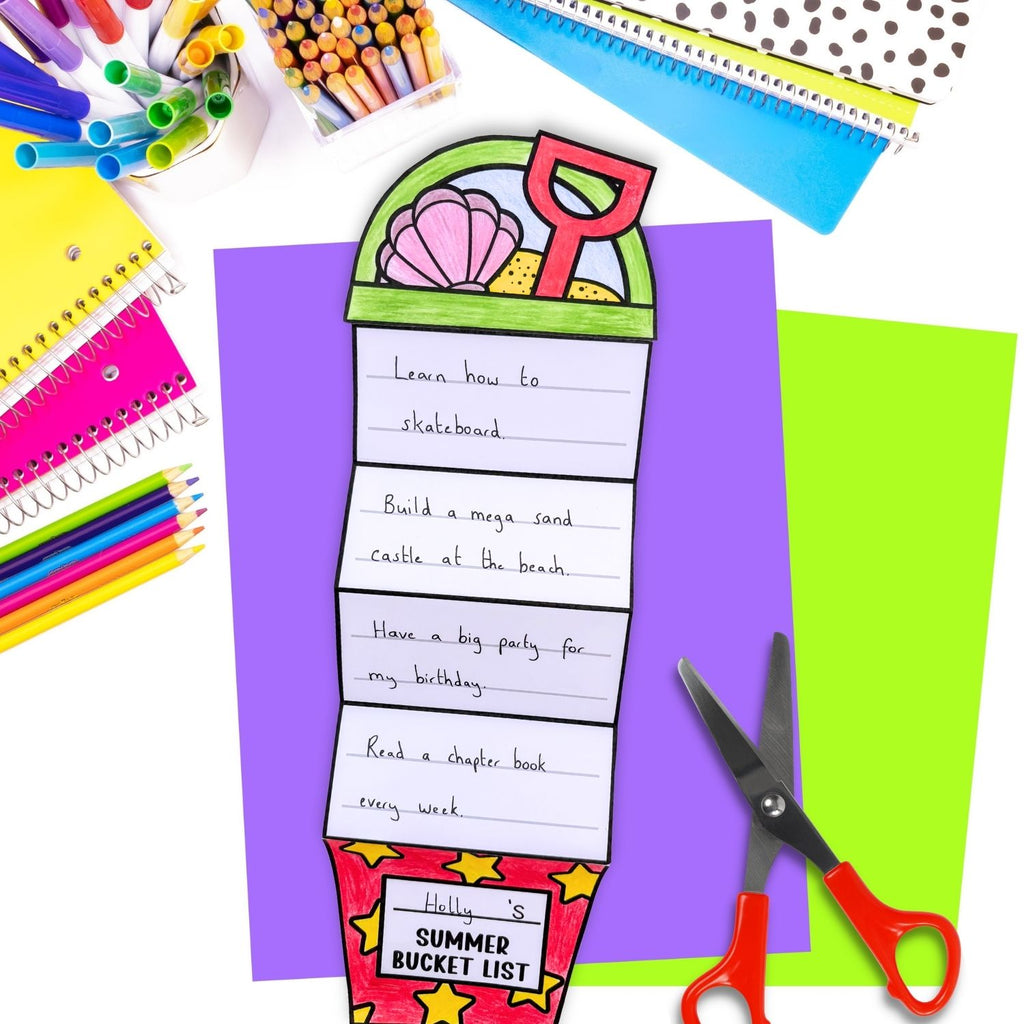 Learn how to
skateboard.
Build a mega sand
castle at the beach.
Have a big party for
my birthday.
Read a chapter book
every week.
Holly 's
SUMMER
BUCKET LIST